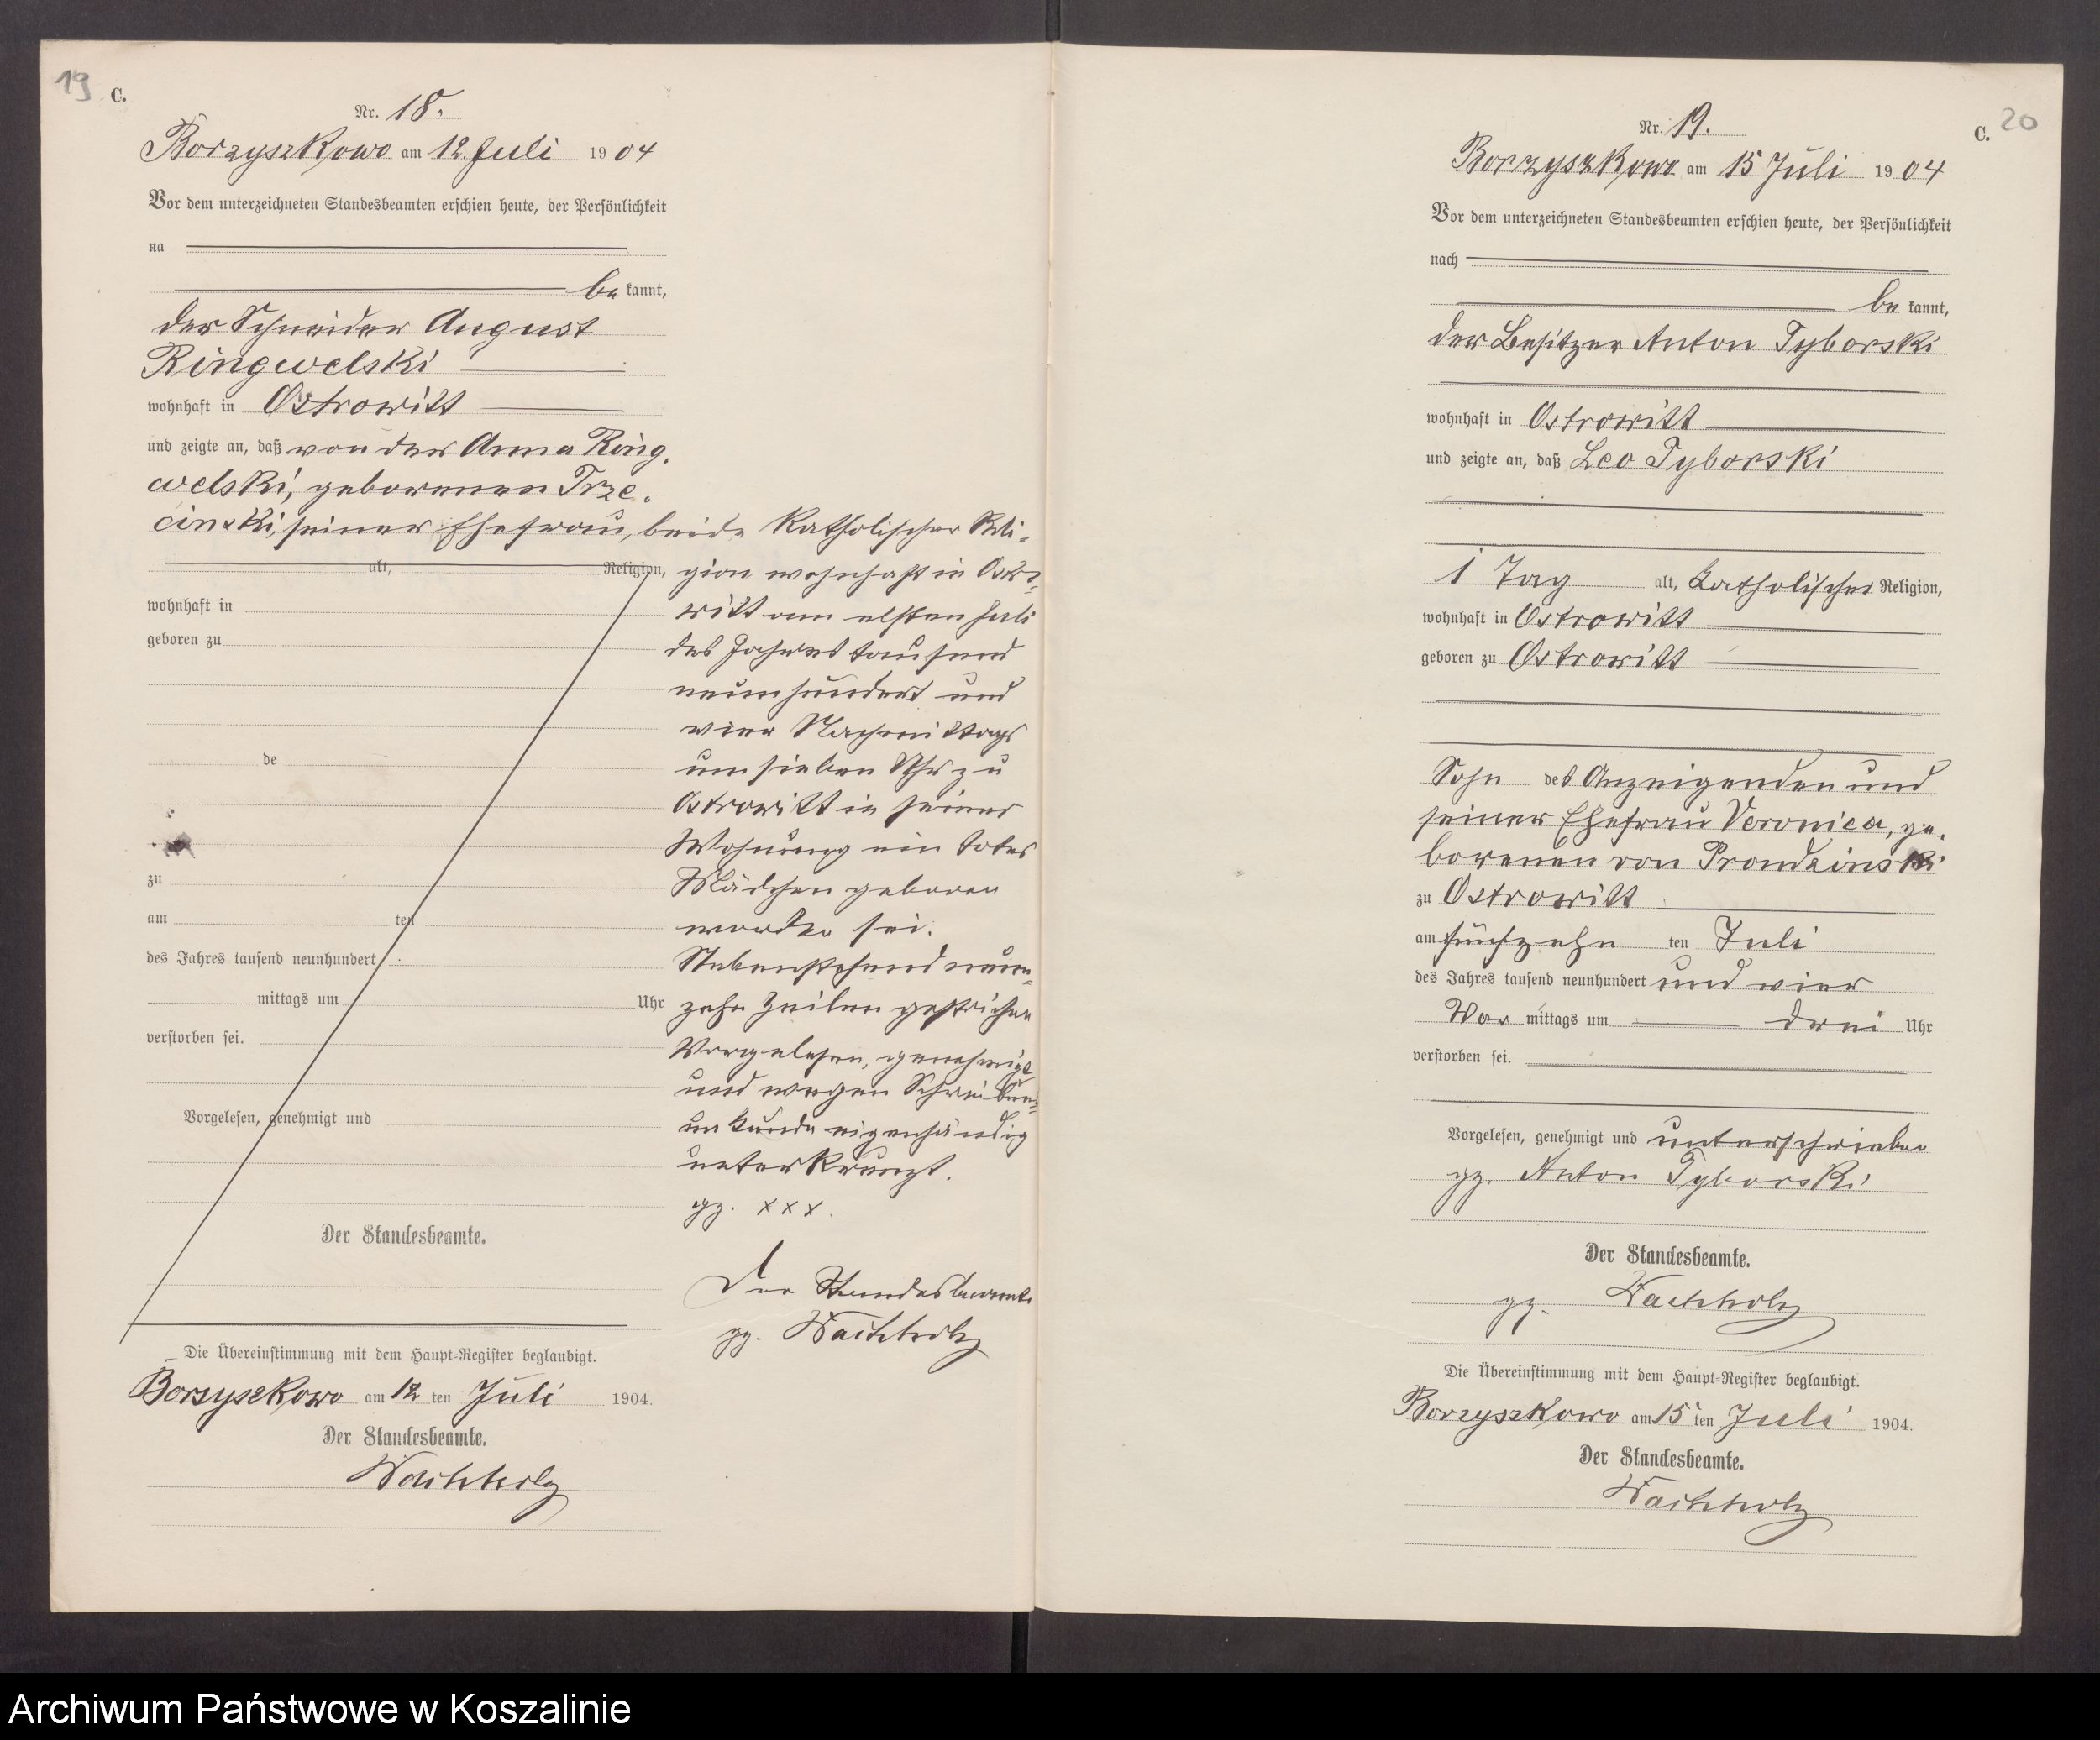 19 C.
Nr. 18.
Borzyszkowo am 12. Juli 1904
Vor dem unterzeichneten Standesbeamten erschien heute, der Persönlichkeit
na
be kannt,
der Schneider August
Ringwelski
wohnhaft in Ostrowitt
und zeigte an, daß von der Anna Ring-
welski, geborenen Trze-
cinski, seiner Ehefrau, beide katholischer Reli-
alt, Religion,
gion wohnhaft in Ostro-
wohnhaft in
witt am elften Juli
geboren zu
des Jahres tausend
neunhundert und
vier Nachmittags
de
um sieben Uhr zu
Ostrowitt in seiner
Wohnung ein totes
zu
Mädchen geboren
am ten
worden sei.
des Jahres tausend neunhundert
Nebenstehend neun-
mittags um Uhr
zehn Zeilen gestrichen
verstorben sei.
Vorgelesen, genehmigt
und wegen Schreibens-
Vorgelesen, genehmigt und
unkunde eigenhändig
unterkreuzt.
gz. x x x.
Der Standesbeamte.
Der Standesbeamte
gz. Wachholz
Die Übereinstimmung mit dem Haupt-Register beglaubigt.
Borzyszkowo am 12 ten Juli 1904.
Der Standesbeamte.
Wachholz
C. 20
Nr. 19.
Borzyszkowo am 15 Juli 1904
Vor dem unterzeichneten Standesbeamten erschien heute, der Persönlichkeit
nach
be kannt,
der Besitzer Anton Tyborski
wohnhaft in Ostrowitt
und zeigte an, daß Leo Tyborski
1 Tag alt, katholischer Religion,
wohnhaft in Ostrowitt
geboren zu Ostrowitt
Sohn des Anzeigenden und
seiner Ehefrau Veronica, ge-
borenen von Prondzinski
zu Ostrowitt
am fünfzehn ten Juli
des Jahres tausend neunhundert und vier
Vor mittags um drei Uhr
verstorben sei.
Vorgelesen, genehmigt und unterschrieben
gz. Anton Tyborski
Der Standesbeamte.
gz. Wachholz
Die Übereinstimmung mit dem Haupt-Register beglaubigt.
Borzyszkowo am 15 ten Juli 1904.
Der Standesbeamte.
Wachholz
Archiwum Państwowe w Koszalinie